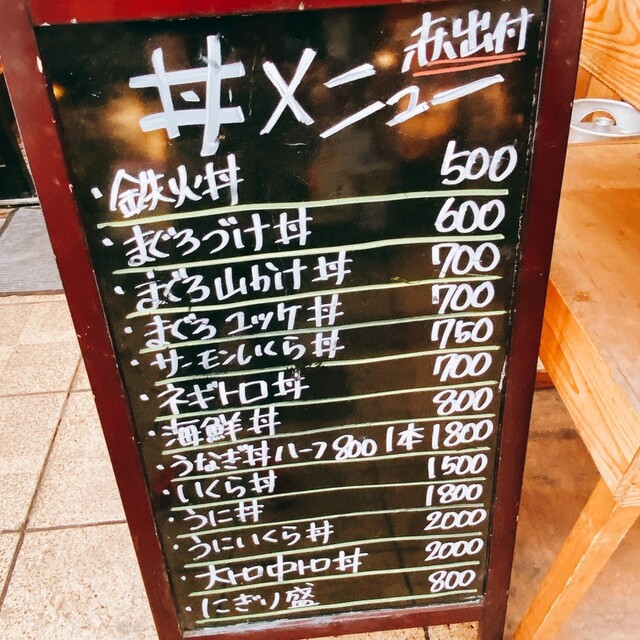 丼メニュー 赤出付
・鉄火丼 500
・まぐろづけ丼 600
・まぐろ山かけ丼 700
・まぐろユッケ丼 700
・サーモンいくら丼 750
・ネギトロ丼 700
・海鮮丼 800
・うなぎ丼ハーフ800 1本1800
・いくら丼 1500
・うに丼 1800
・うにいくら丼 2000
・大トロ中トロ丼 2000
・にぎり盛 800